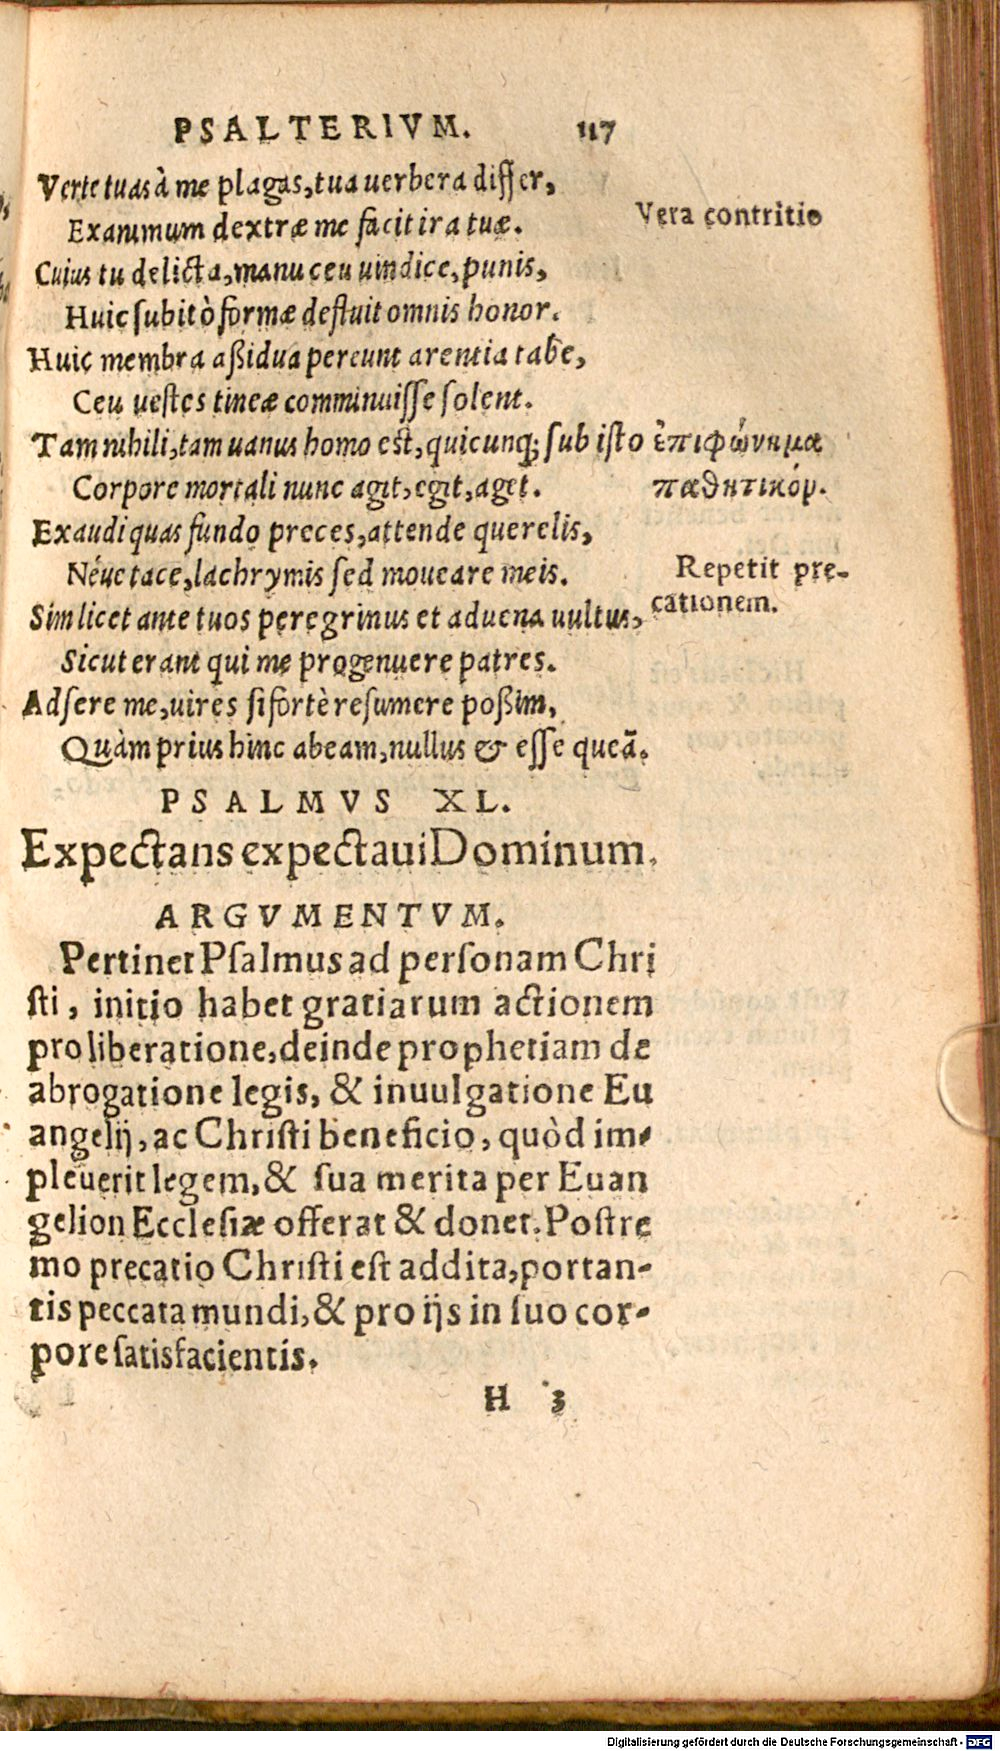 PSALTERIVM. 117
Verte tuas à me plagas, tua uerbera differ,
Exanimum dextræ me facit ira tuæ.
Vera contritio
Cuius tu delicta, manu ceu uindice, punis,
Huic subitò formæ defluit omnis honor.
Huic membra aßidua pereunt arentia tabe,
Ceu uestes tineæ comminuisse solent.
Tam nihili, tam uanus homo est, quicunq; sub isto
Corpore mortali nunc agit, egit, aget.
ἐπιφώνημα
παθητικόν.
Exaudi quas fundo preces, attende querelis,
Néue tace, lachrymis sed moueare meis.
Repetit pre-
cationem.
Sim licet ante tuos peregrinus et aduena uultus,
Sicut erant qui me progenuere patres.
Adsere me, uires si fortè resumere poßim,
Quàm prius hinc abeam, nullus & esse queā.
PSALMVS XL.
Expectans expectaui Dominum.
ARGVMENTVM.
Pertinet Psalmus ad personam Chri
sti, initio habet gratiarum actionem
pro liberatione, deinde prophetiam de
abrogatione legis, & inuulgatione Eu
angelij, ac Christi beneficio, quòd im-
pleuerit legem, & sua merita per Euan
gelion Ecclesiæ offerat & donet. Postre
mo precatio Christi est addita, portan-
tis peccata mundi, & pro ijs in suo cor-
pore satisfacientis.
H 3
Digitalisierung gefördert durch die Deutsche Forschungsgemeinschaft - DFG